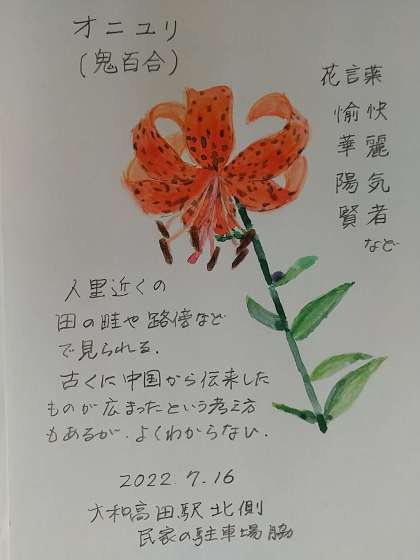 オニユリ
(鬼百合)
花言葉
愉快
華麗
陽気
賢者
など
人里近くの
田の畦や路傍など
で見られる.
古くに中国から伝来した
ものが広まったという考え方
もあるが.よくわからない.
2022.7.16
大和高田駅北側
民家の駐車場脇